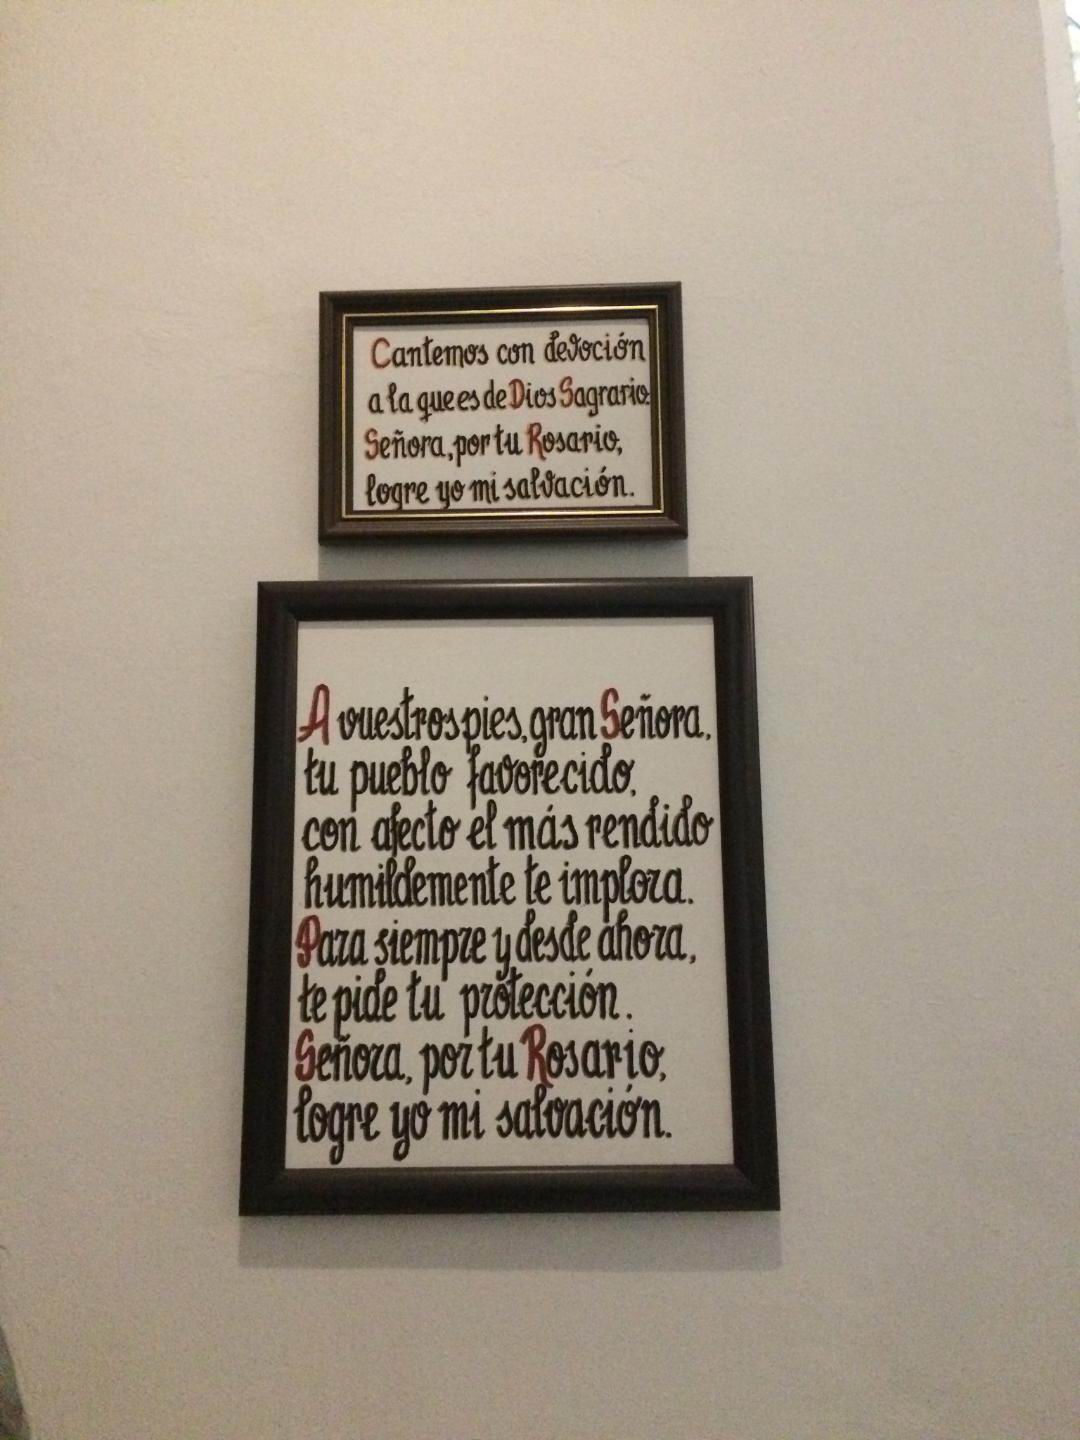 Cantemos con devoción
a la que es de Dios Sagrario.
Señora, por tu Rosario,
logre yo mi salvación.
A vuestros pies, gran Señora,
tu pueblo favorecido,
con afecto el más rendido
humildemente te implora.
Para siempre y desde ahora,
te pide tu protección.
Señora, por tu Rosario,
logre yo mi salvación.